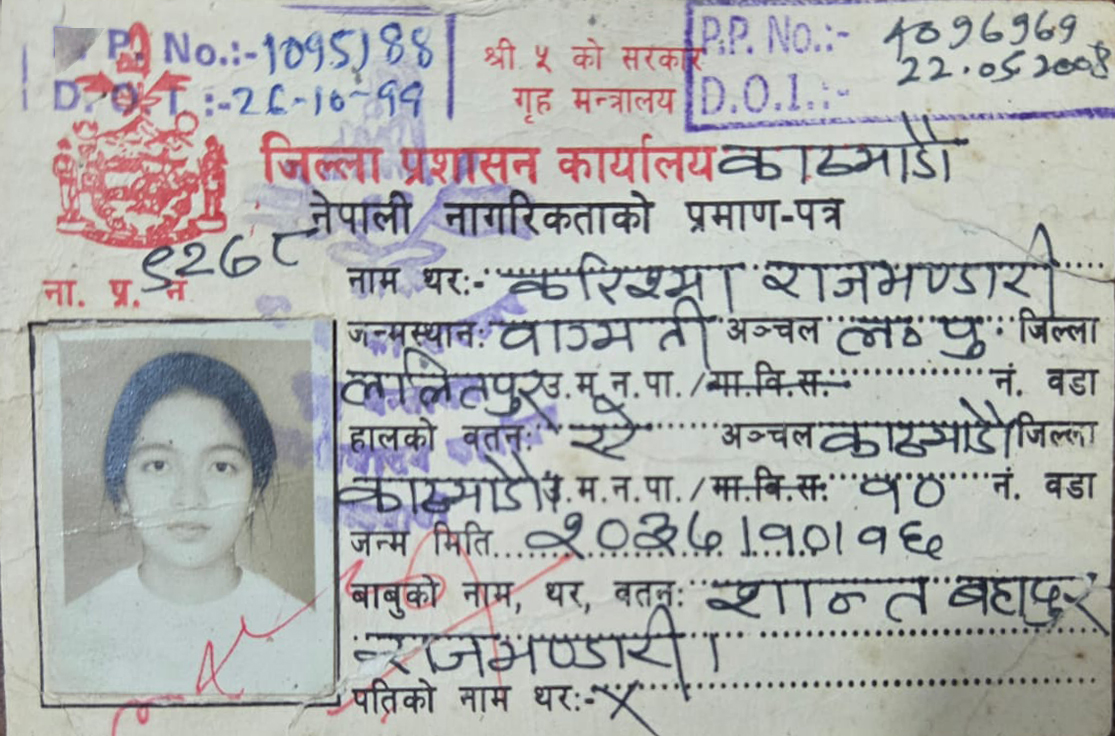 P.P. No.:-1095188
D.O.I.:-26-10-99
श्री ५ को सरकार
गृह मन्त्रालय
P.P. No.:- 4096969
D.O.I.:- 22.05.2008
जिल्ला प्रशासन कार्यालय काठमाडौं
नेपाली नागरिकताको प्रमाण-पत्र
ना. प्र. नं
नाम थर:- करिश्मा राजभण्डारी
जन्मस्थान: वाग्मती अञ्चल ल० पु. जिल्ला
ललितपुर उ.मू.न.पा./गा.वि.स. नं. वडा
हालको वतन: अञ्चल काठमाडौं जिल्ला
काठमाडौं उ.म.न.पा./गा.वि.स. १० नं. वडा
जन्म मिति २०३६।१०।१६
बाबुको नाम, थर, वतन: शान्त बहादुर
राजभण्डारी।
पतिको नाम थर:- X